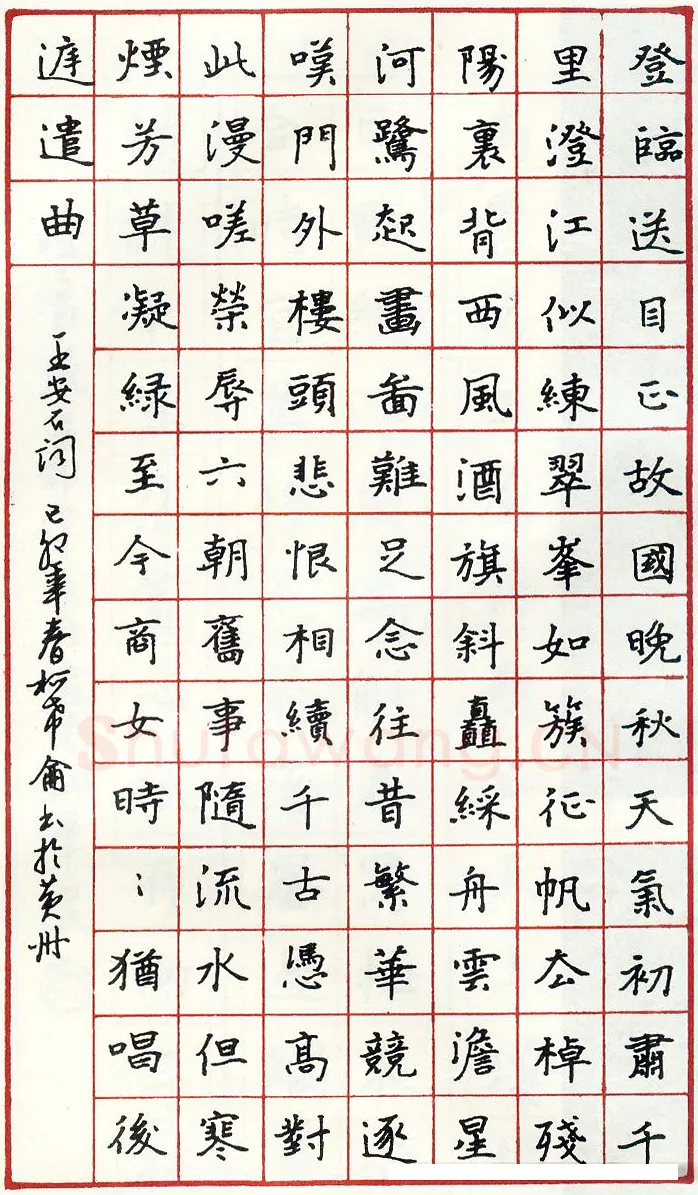 登臨送目正故國晚秋天氣初肅千
里澄江似練翠峯如簇征帆去棹殘
陽裏背西風酒旗斜矗綵舟雲澹星
河鷺起畫啚難足念往昔繁華競逐
嘆門外樓頭悲恨相續千古憑高對
此漫嗟榮辱六朝舊事隨流水但寒
煙芳草凝緑至今商女時〻猶唱後
庭遺曲
王安石词 己卯年春书於黄州
Shufawang.CN